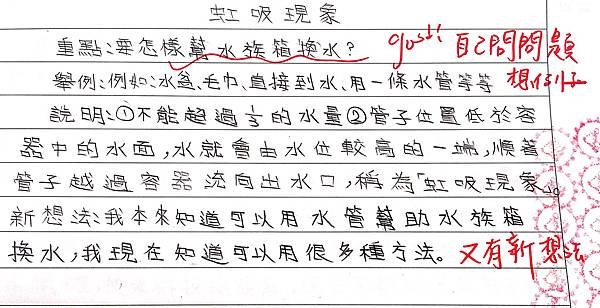 虹吸現象
重點:要怎樣幫水族箱換水? good!! 自己問問題
舉例:例如:水盆、毛巾、直接到水、用一條水管等等 想例子
說明:①不能超過½的水量②管子位置低於容
器中的水面,水就會由水位較高的一端,順著
管子越過容器流向出水口,稱為「虹吸現象」。
新想法:我本來知道可以用水管幫助水族箱
換水,我現在知道可以用很多種方法。 又有新想法